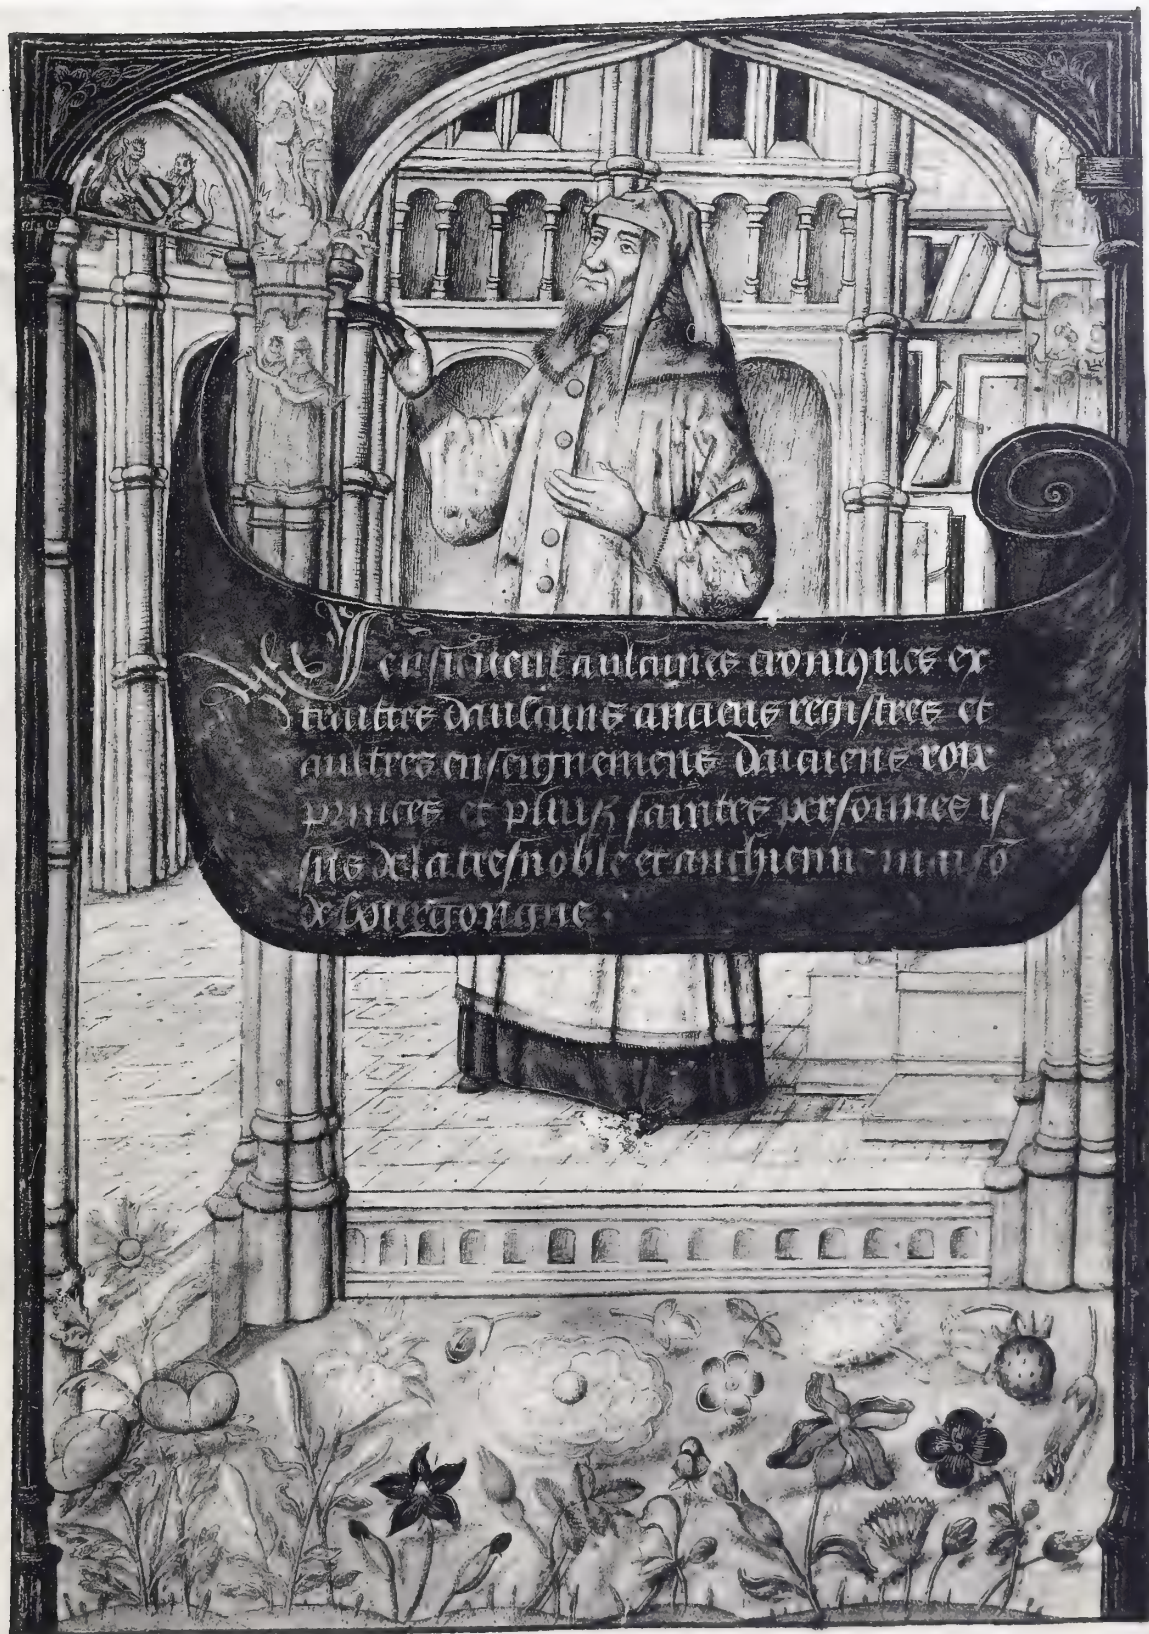 Cy ensuivent aulcunes croniques ex
traittes daulcuns anciens registres et
aultres enseignemens danciens roix
princes et pluiss saintes personnes is
sus de la tresnoble et anchienne maisõ
de bourgongne